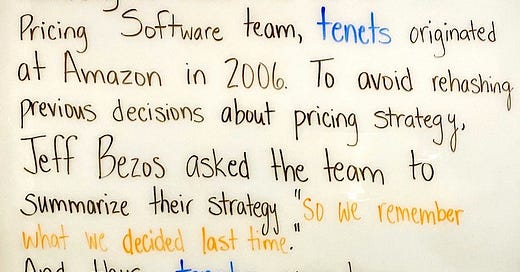 Pricing Software team, tenets originated
at Amazon in 2006. To avoid rehashing
previous decisions about pricing strategy,
Jeff Bezos asked the team to
summarize their strategy "So we remember
what we decided last time."
And thus